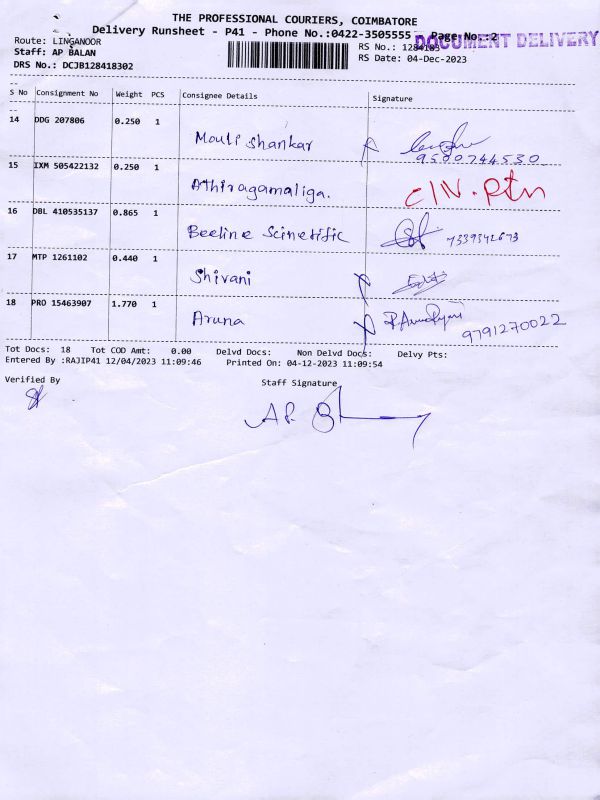 THE PROFESSIONAL COURIERS, COIMBATORE
Delivery Runsheet - P41 - Phone No.:0422-3505555 Page No.:2
DOCUMENT DELIVERY
Route: LINGANOOR RS No.: 1284183
Staff: AP BALAN RS Date: 04-Dec-2023
DRS No.: DCJB128418302
S No Consignment No Weight PCS Consignee Details Signature
14 DDG 207806 0.250 1
Mouli Shankar
9500744530
15 IXM 505422132 0.250 1
Athiragamaliga. C/N. Rtn
16 DBL 410535137 0.865 1
Beeline Scinetific 7339342673
17 MTP 1261102 0.440 1
Shivani
18 PRO 15463907 1.770 1
Aruna 9791270022
Tot Docs: 18 Tot COD Amt: 0.00 Delvd Docs: Non Delvd Docs: Delvy Pts:
Entered By :RAJIP41 12/04/2023 11:09:46 Printed On: 04-12-2023 11:09:54
Verified By Staff Signature